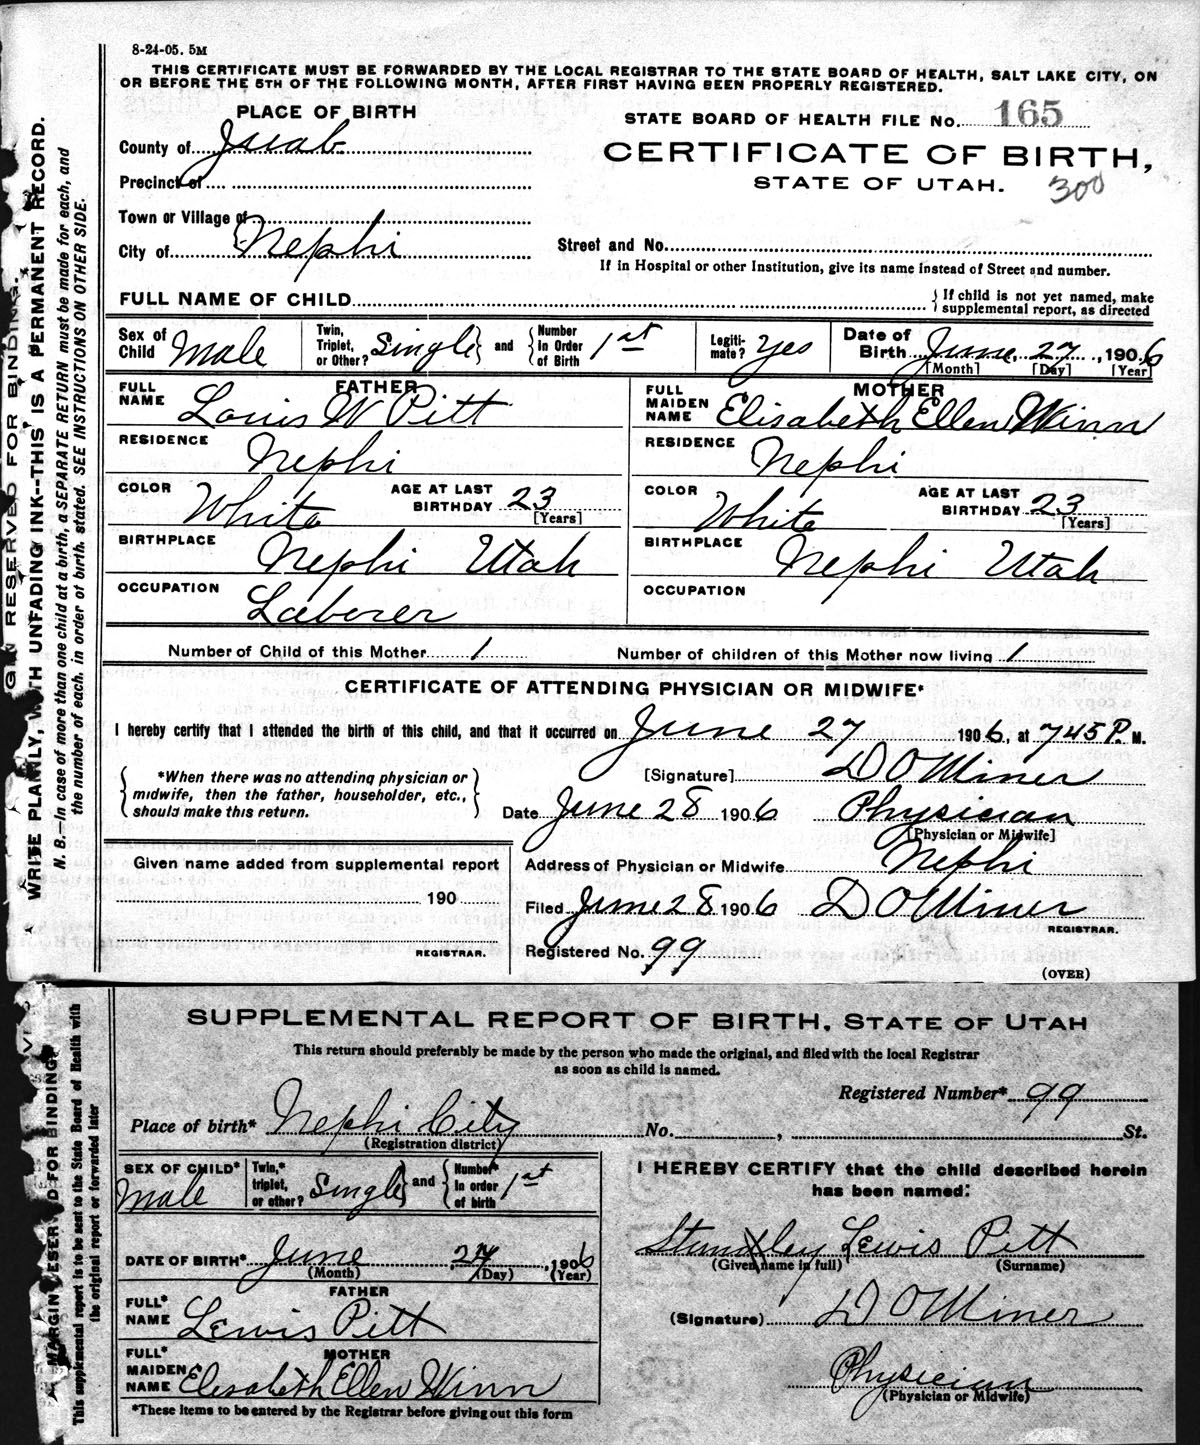 8-24-05. 5M
THIS CERTIFICATE MUST BE FORWARDED BY THE LOCAL REGISTRAR TO THE STATE BOARD OF HEALTH, SALT LAKE CITY, ON
OR BEFORE THE 5TH OF THE FOLLOWING MONTH, AFTER FIRST HAVING BEEN PROPERLY REGISTERED.
PLACE OF BIRTH
STATE BOARD OF HEALTH FILE No. 165
County of Juab
CERTIFICATE OF BIRTH,
Precinct of
STATE OF UTAH. 300
Town or Village of
City of Nephi
Street and No.
If in Hospital or other Institution, give its name instead of Street and number.
FULL NAME OF CHILD
If child is not yet named, make
supplemental report, as directed
Sex of Child Male
Twin, Triplet, or Other? Single and Number in Order of Birth 1st
Legitimate? yes
Date of Birth June 27, 1906
[Month] [Day] [Year]
FATHER
FULL NAME Louis W Pitt
MOTHER
FULL MAIDEN NAME Elisabeth Ellen Winn
RESIDENCE Nephi
RESIDENCE Nephi
COLOR White AGE AT LAST BIRTHDAY 23 [Years]
COLOR White AGE AT LAST BIRTHDAY 23 [Years]
BIRTHPLACE Nephi Utah
BIRTHPLACE Nephi Utah
OCCUPATION Laborer
OCCUPATION
Number of Child of this Mother 1 Number of children of this Mother now living 1
CERTIFICATE OF ATTENDING PHYSICIAN OR MIDWIFE*
I hereby certify that I attended the birth of this child, and that it occurred on June 27 1906, at 745 P. M.
*When there was no attending physician or
midwife, then the father, householder, etc.,
should make this return.
[Signature] D O Miner
Date June 28 1906 Physician
[Physician or Midwife]
Given name added from supplemental report
190
REGISTRAR.
Address of Physician or Midwife Nephi
Filed June 28 1906 D O Miner
REGISTRAR.
Registered No. 99
(OVER)
WRITE PLAINLY, WITH UNFADING INK--THIS IS A PERMANENT RECORD.
N. B.—In case of more than one child at a birth, a SEPARATE RETURN must be made for each, and
the number of each, in order of birth, stated. SEE INSTRUCTIONS ON OTHER SIDE.
RESERVED FOR BINDING.
SUPPLEMENTAL REPORT OF BIRTH, STATE OF UTAH
This return should preferably be made by the person who made the original, and filed with the local Registrar
as soon as child is named.
Registered Number* 99
Place of birth* Nephi City No. , St.
(Registration district)
SEX OF CHILD* Male
Twin,* triplet, or other? Single and Number* in order of birth 1st
I HEREBY CERTIFY that the child described herein
has been named:
Standley Lewis Pitt
(Given name in full) (Surname)
DATE OF BIRTH* June 27, 1906
(Month) (Day) (Year)
FATHER
FULL* NAME Lewis Pitt
(Signature) D O Miner
MOTHER
FULL* MAIDEN NAME Elisabeth Ellen Winn
Physician
(Physician or Midwife)
*These items to be entered by the Registrar before giving out this form
MARGIN RESERVED FOR BINDING
This supplemental report is to be sent to the State Board of Health with
the original report or forwarded later